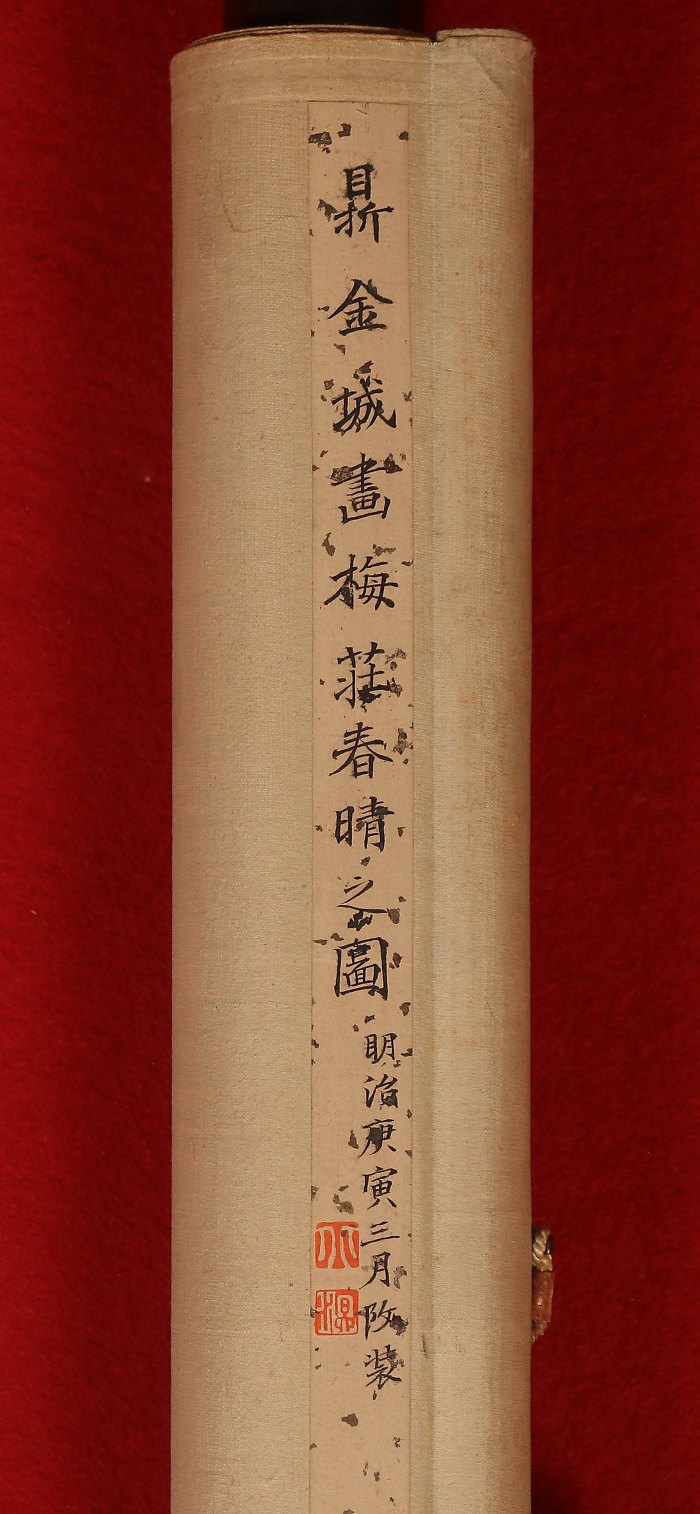 鼎金城畫梅荘春晴之圖
明治庚寅三月改装